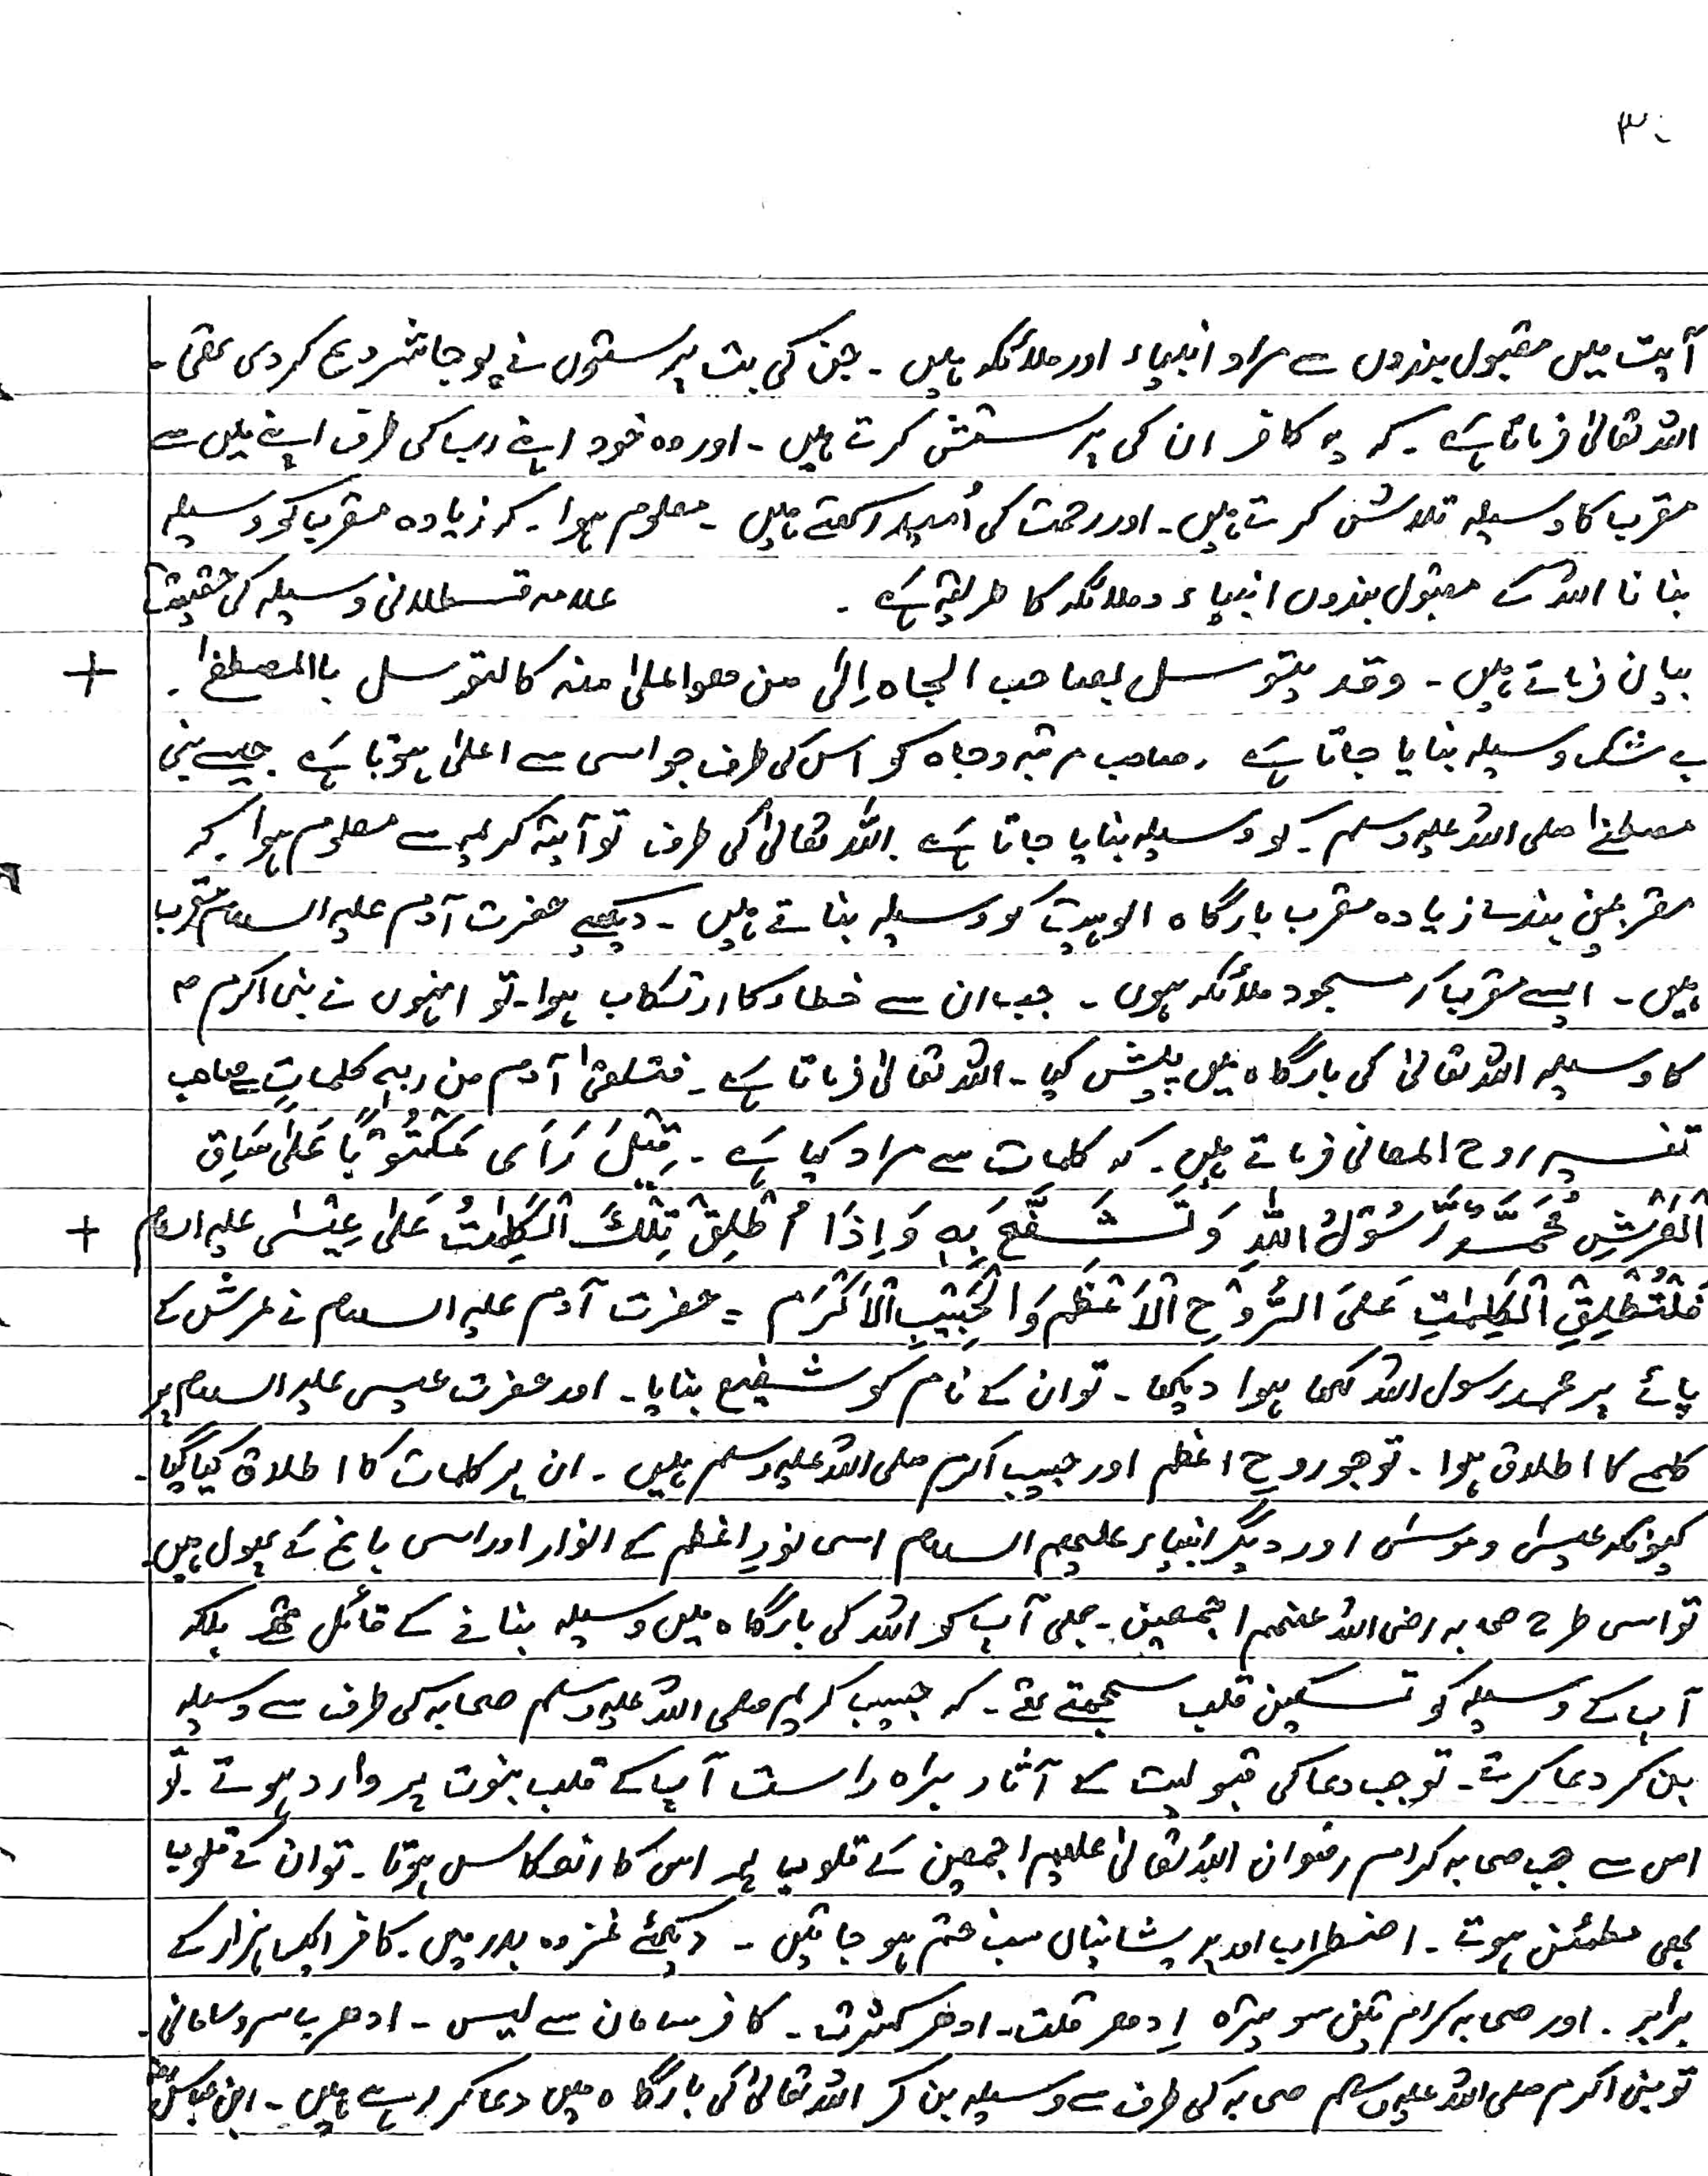 ۳۰
آیت میں مقبول بندوں سے مراد انبیاء اور ملائکہ ہیں ۔ جن کی بت پرستوں نے پوجا شروع کر دی تھی ۔
اللہ تعالیٰ فرماتا ہے ۔ کہ یہ کافر ان کی پرستش کرتے ہیں ۔ اور وہ خود اپنے رب کی طرف اپنے میں سے
مقرب کا وسیلہ تلاش کرتے ہیں ۔ اور رحمت کی اُمید رکھتے ہیں ۔ معلوم ہوا ۔ کہ زیادہ مقرب کو وسیلہ
بنانا اللہ کے مقبول بندوں انبیاء و ملائکہ کا طریقہ ہے ۔ علامہ قسطلانی وسیلہ کی حقیقت
بیان فرماتے ہیں ۔ وقد یتوسل بصاحب الجاہ اِلیٰ من ھو اعلیٰ منہ کالتوسل باالمصطفےٰ ۔ +
بے شک وسیلہ بنایا جاتا ہے ۔ صاحب مرتبہ و جاہ کو اس کی طرف جو اسی سے اعلیٰ ہوتا ہے ۔ جیسے نبی
مصطفےٰ صلی اللہ علیہ وسلم ۔ کو وسیلہ بنایا جاتا ہے ۔ اللہ تعالیٰ کی طرف تو آیۃ کریمہ سے معلوم ہوا ۔ کہ
مقربین بندے زیادہ مقرب بارگاہ الوہیت کو وسیلہ بناتے ہیں ۔ دیکھیے حضرت آدم علیہ السلام مقرب
ہیں ۔ ایسے مقرب کہ مسجود ملائکہ ہوں ۔ جب ان سے خطاء کا ارتکاب ہوا ۔ تو انہوں نے نبی اکرم ؐ
کا وسیلہ اللہ تعالیٰ کی بارگاہ میں پیش کیا ۔ اللہ تعالیٰ فرماتا ہے ۔ فتلقیٰ آدم من ربہٖ کلماتٍ صاحب
تفسیر روح المعانی فرماتے ہیں ۔ کہ کلمات سے مراد کیا ہے ۔ قِیْلَ رَاَی مَکْتُوْبًا عَلیٰ سَاقِ
الْعَرْشِ مُحَمَّدٌ رَّسُوْلُ اللّٰہِ وَتَشَفَّعَ بِہٖ وَاِذَا اُطْلِقَ تِلْکَ الْکَلِمٰتُ عَلیٰ عِیْسٰی علیہ السلام +
فَلْتُطْلِقِ الْکَلِمٰتِ عَلیَ الرُّوْحِ الْاَعْظَمِ وَالْحَبِیْبِ الْاَکْرَمِ = حضرت آدم علیہ السلام نے عرش کے
پائے پر محمد رسول اللہ لکھا ہوا دیکھا ۔ تو ان کے نام کو شفیع بنایا ۔ اور حضرت عیسی علیہ السلام پر
کلمے کا اطلاق ہوا ۔ تو جو روحِ اعظم اور حبیب اکرم صلی اللہ علیہ وسلم ہیں ۔ ان پر کلمات کا اطلاق کیا گیا ۔
کیونکہ عیسیٰ و موسیٰ اور دیگر انبیاء علیہم السلام اسی نورِ اعظم کے انوار اور اسی باغ کے پھول ہیں ۔
تو اسی طرح صحابہ رضی اللہ عنہم اجمعین ۔ بھی آپ کو اللہ کی بارگاہ میں وسیلہ بنانے کے قائل تھے بلکہ
آپ کے وسیلہ کو تسکین قلب سمجھتے تھے ۔ کہ حبیب کریم صلی اللہ علیہ وسلم صحابہ کی طرف سے وسیلہ
بن کر دعا کرتے ۔ تو جب دعا کی قبولیت کے آثار براہ راست آپ کے قلب نبوت پر وارد ہوتے ۔ تو
اس سے جب صحابہ کرام رضوان اللہ تعالیٰ علیہم اجمعین کے قلوب پر اس کا انعکاس ہوتا ۔ تو ان کے قلوب
بھی مطمئن ہوتے ۔ اضطراب اور پریشانیاں سب ختم ہو جاتیں ۔ دیکھئے غزوہ بدر میں ۔ کافر ایک ہزار کے
برابر ۔ اور صحابہ کرام تین سو تیرہ اِدھر قلت ۔ ادھر کثرت ۔ کافر سامان سے لیس ۔ ادھر بے سرو سامانی ۔
تو نبی اکرم صلی اللہ علیہ وسلم صحابہ کی طرف سے وسیلہ بن کر اللہ تعالیٰ کی بارگاہ میں دعا کر رہے ہیں ۔ ابن عباس